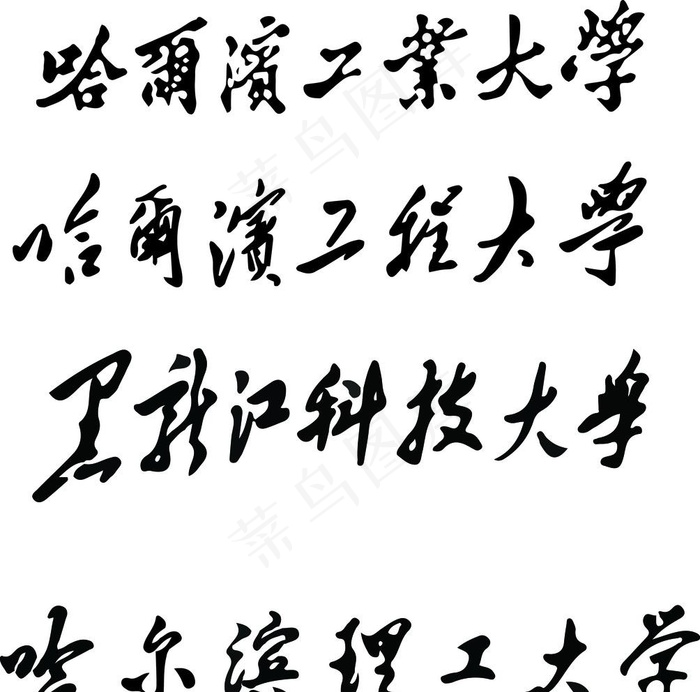 哈爾濱工業大學
哈爾濱工程大學
黑龙江科技大学
哈尔滨理工大学
菜鸟图库
菜鸟图库